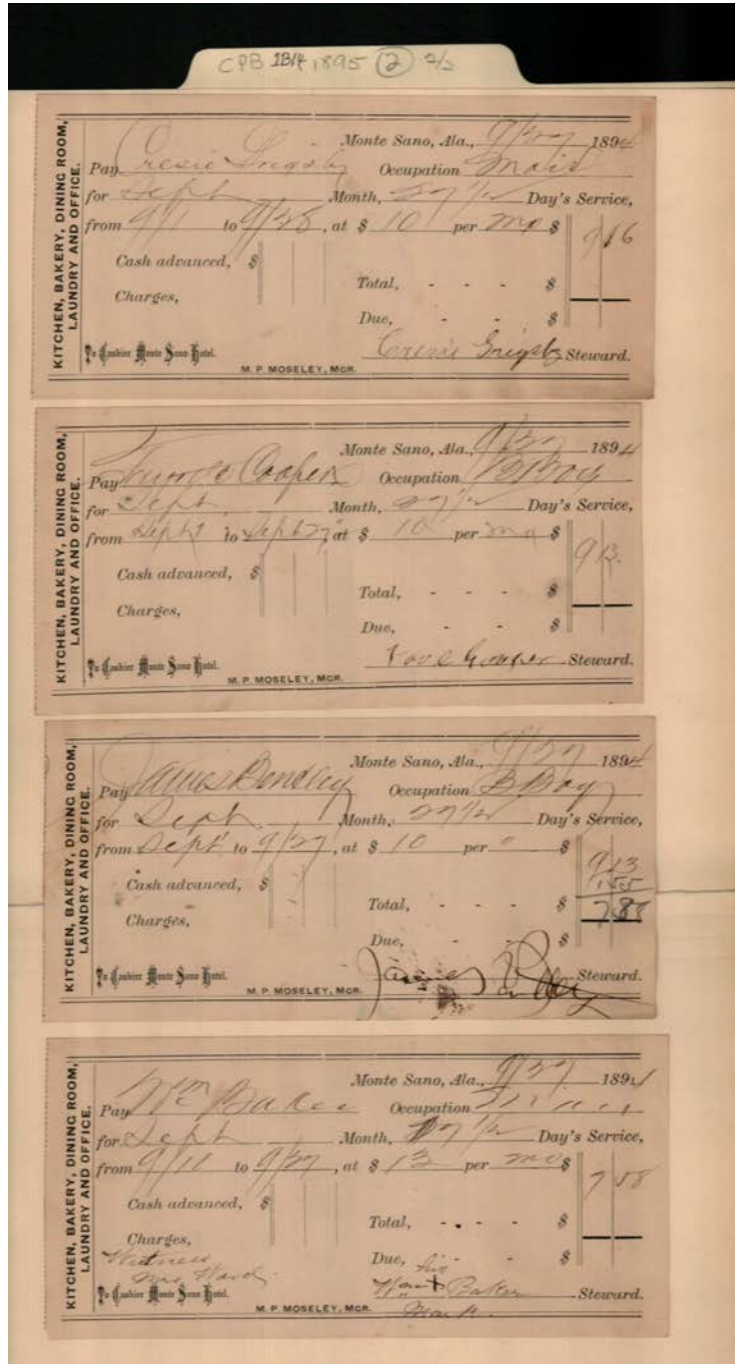 CPB 1894 1895 ② 2/2
KITCHEN, BAKERY, DINING ROOM,
LAUNDRY AND OFFICE.
Monte Sano, Ala., 9/27 1894
Pay Cresie Grigsby Occupation Maid
for Sept Month, 27 1/2 Day's Service,
from 9/1 to 9/28, at $ 10 per mo $ 9 16
Cash advanced, $
Total, - - - $
Charges,
Due, - - $
Cresie Grigsby Steward.
To Cashier Monte Sano Hotel.
M. P. MOSELEY, MGR.
KITCHEN, BAKERY, DINING ROOM,
LAUNDRY AND OFFICE.
Monte Sano, Ala., 9/27 1894
Pay Cooper Occupation B Boy
for Sept. Month, 27 1/2 Day's Service,
from Sept 1 to Sept 27, at $ 10 per mo $ 9 13
Cash advanced, $
Total, - - - $
Charges,
Due, - - $
Steward.
To Cashier Monte Sano Hotel.
M. P. MOSELEY, MGR.
KITCHEN, BAKERY, DINING ROOM,
LAUNDRY AND OFFICE.
Monte Sano, Ala., 9/27 1894
Pay James Occupation B Boy
for Sept. Month, 27 1/2 Day's Service,
from Sept 1 to 9/27, at $ 10 per " $ 9 13
Cash advanced, $ 1 55
Total, - - - $ 7 88
Charges,
Due, - - $
James Steward.
To Cashier Monte Sano Hotel.
M. P. MOSELEY, MGR.
KITCHEN, BAKERY, DINING ROOM,
LAUNDRY AND OFFICE.
Monte Sano, Ala., 9/27 1894
Pay Wm Baker Occupation
for Sept Month, 17 1/2 Day's Service,
from 9/11 to 9/27, at $ 13 per mo $ 7 58
Cash advanced, $
Total, - - - $
Charges,
Witness
Mrs Ward
Due, - - $
his
Wm X Baker Steward.
Mark
To Cashier Monte Sano Hotel.
M. P. MOSELEY, MGR.